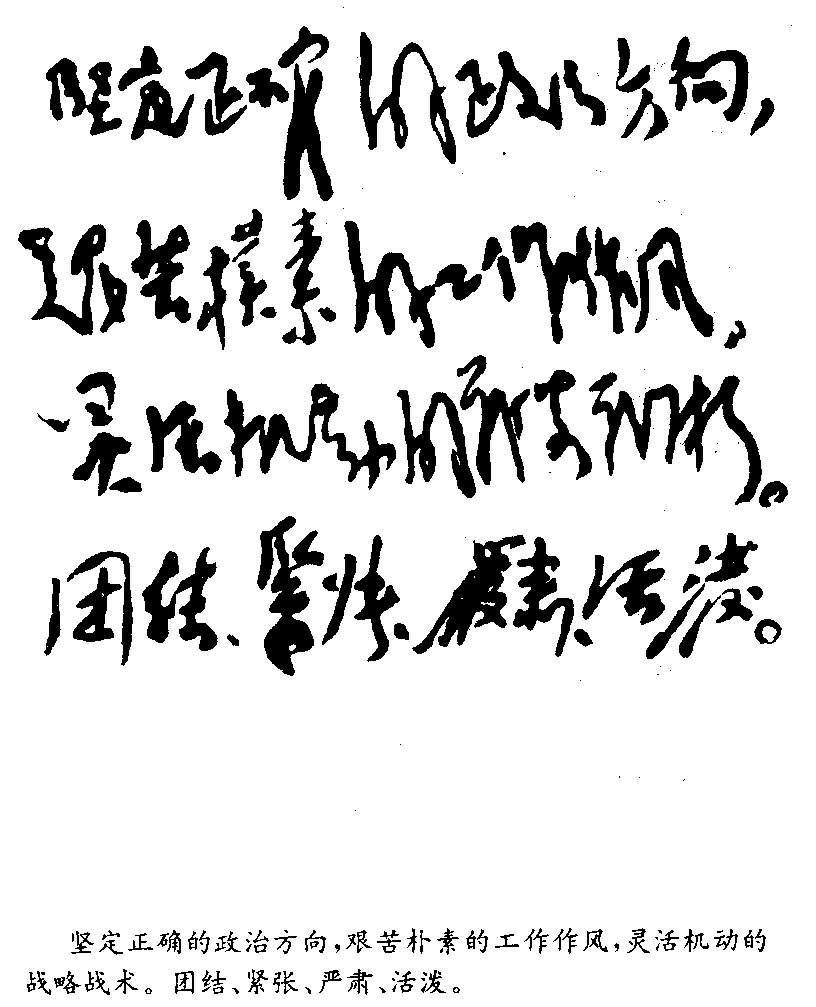 坚定正确的政治方向，
艰苦樸素的工作作风，
灵活机动的战略战术。
团结、紧张、严肃、活泼。
坚定正确的政治方向，艰苦朴素的工作作风，灵活机动的
战略战术。团结、紧张、严肃、活泼。